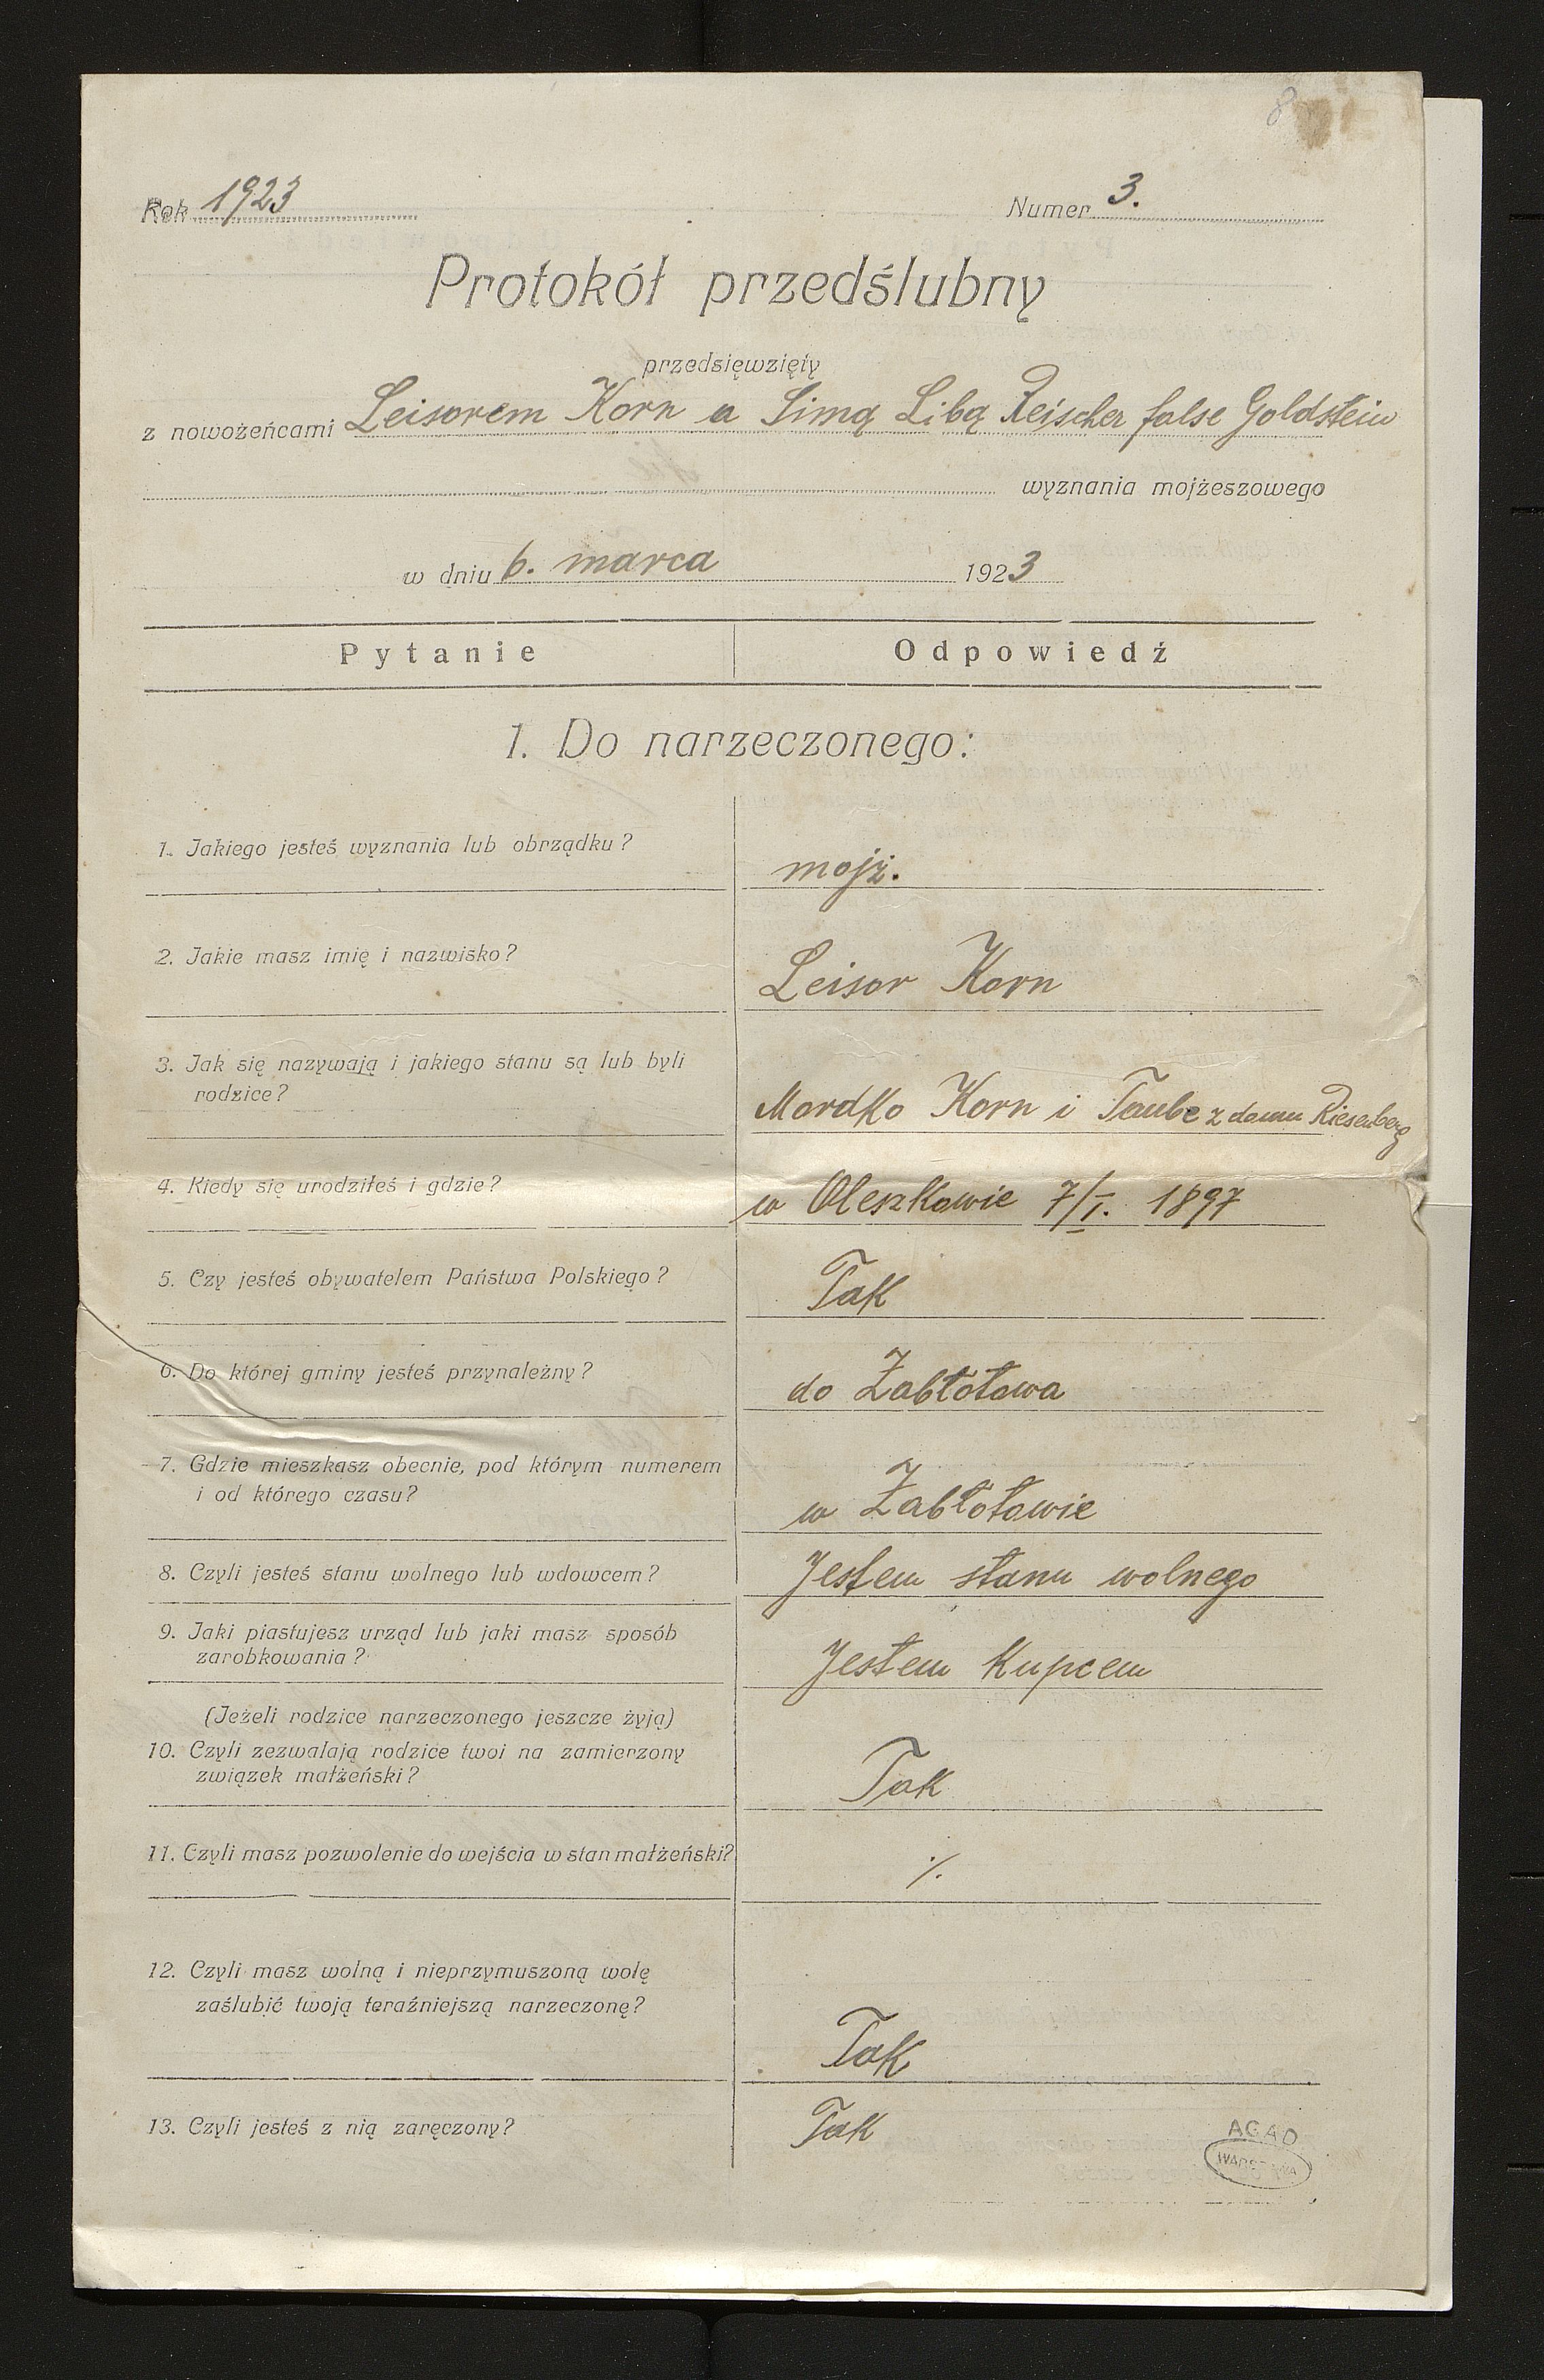 8
Rok 1923
Numer 3.
Protokół przedślubny
przedsięwzięty
z nowożeńcami Leisorem Korn a Simą Libą Reischer false Goldstein
wyznania mojżeszowego
w dniu 6. marca 1923
Pytanie
Odpowiedź
1. Do narzeczonego:
1. Jakiego jesteś wyznania lub obrządku?
mojż.
2. Jakie masz imię i nazwisko?
Leisor Korn
3. Jak się nazywają i jakiego stanu są lub byli
rodzice?
Mordko Korn i Taube z domu Riesenberg
4. Kiedy się urodziłeś i gdzie?
w Oleszkowie 7/I. 1897
5. Czy jesteś obywatelem Państwa Polskiego?
Tak
6. Do której gminy jesteś przynależny?
do Zabłotowa
7. Gdzie mieszkasz obecnie, pod którym numerem
i od którego czasu?
w Zabłotowie
8. Czyli jesteś stanu wolnego lub wdowcem?
Jestem stanu wolnego
9. Jaki piastujesz urząd lub jaki masz sposób
zarobkowania?
Jestem kupcem
(Jeżeli rodzice narzeczonego jeszcze żyją)
10. Czyli zezwalają rodzice twoi na zamierzony
związek małżeński?
Tak
11. Czyli masz pozwolenie do wejścia w stan małżeński?
⁒
12. Czyli masz wolną i nieprzymuszoną wolę
zaślubić twoją teraźniejszą narzeczonę?
Tak
13. Czyli jesteś z nią zaręczony?
Tak
AGAD
WARSZAWA